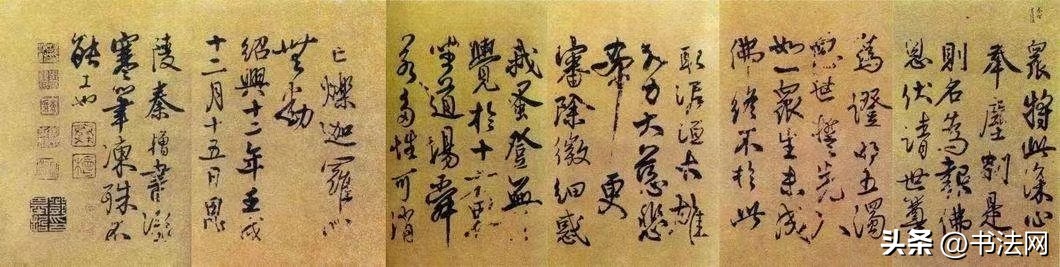 眾將此深心
奉塵刹是
則名為報佛
恩伏請世尊
為證明五濁
惡世誓先入
如一眾生未成
佛終不於此
取泥洹大雄
大力大慈悲
希更
審除微細惑
我蚤登無上
覺於十方界
坐道場舜
若多性可消
亡爍迦羅心
無動
紹興十二年壬戌
十二月十五日
陵秦檜書
寒筆凍殊不
能工也
头条 @书法网